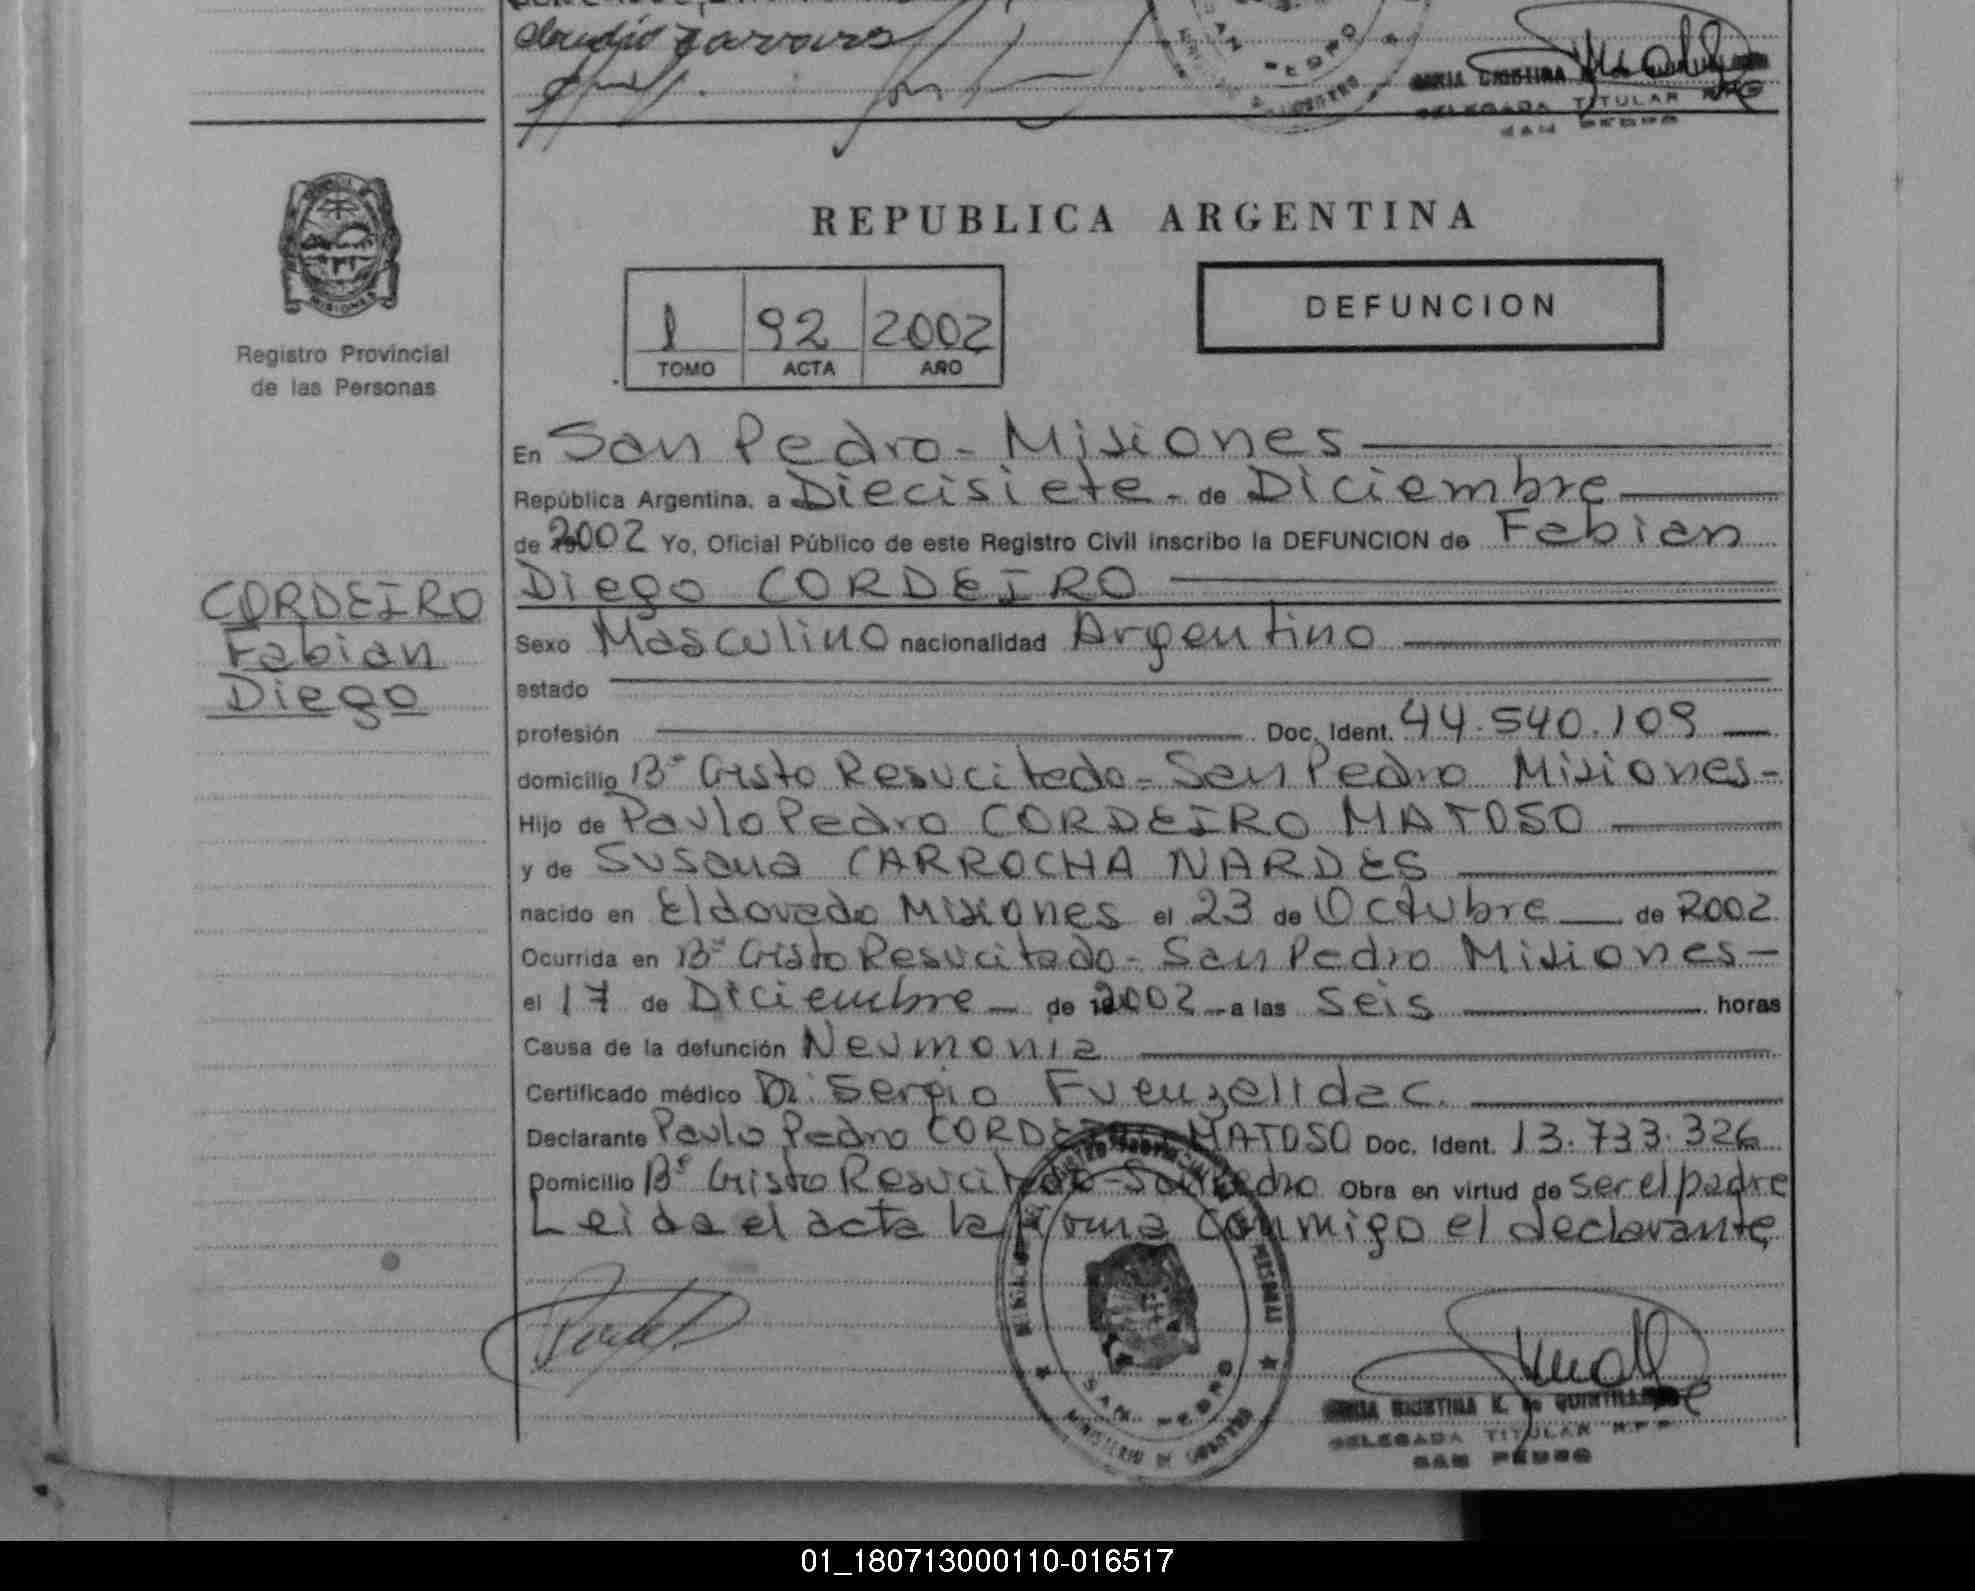 Claudio
MARIA CRISTINA
DELEGADA TITULAR
SAN PEDRO
MISIONES
Registro Provincial
de las Personas
REPUBLICA ARGENTINA
1 92 2002
TOMO ACTA AÑO
DEFUNCION
En San Pedro - Misiones
República Argentina, a Diecisiete - de Diciembre
de 2002 Yo, Oficial Público de este Registro Civil inscribo la DEFUNCION de Fabian
Diego CORDEIRO
CORDEIRO
Fabian
Diego
Sexo Masculino nacionalidad Argentino
estado
profesión Doc. Ident. 44.540.109
domicilio Bº Cristo Resucitado - San Pedro Misiones -
Hijo de Paulo Pedro CORDEIRO MATOSO
y de Susana CARROCHA NARDES
nacido en Eldorado Misiones el 23 de Octubre de 2002
Ocurrida en Bº Cristo Resucitado - San Pedro Misiones -
el 17 de Diciembre - de 2002 - a las Seis horas
Causa de la defunción Neumonia
Certificado médico Dr. Sergio Fuenzelida C.
Declarante Paulo Pedro CORDEIRO MATOSO Doc. Ident. 13.733.326
Domicilio Bº Cristo Resucitado - San Pedro Obra en virtud de ser el padre
Leida el acta la firma conmigo el declarante
SAN PEDRO
MINISTERIO DE GOBIERNO
MARIA CRISTINA K. de QUINTILLAN
DELEGADA TITULAR R.P.P.
SAN PEDRO
01_180713000110-016517